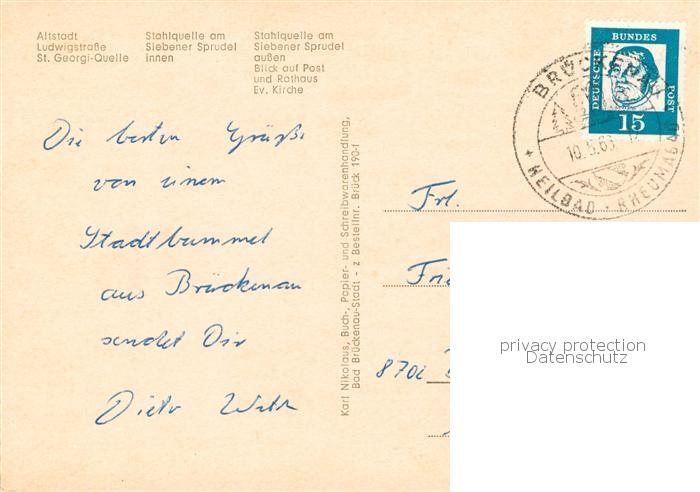 Altstadt
Ludwigstraße
St. Georgi-Quelle
Stahlquelle am
Siebener Sprudel
innen
Stahlquelle am
Siebener Sprudel
außen
Blick auf Post
und Rathaus
Ev. Kirche
DEUTSCHE
BUNDES
POST
15
BRÜCKENAU
10.5.63
HEILBAD + RHEUMABAD
Die besten Grüße
von einem
Stadtbummel
aus Brückenau
sendet Dir
Dieter
Karl Nikolaus, Buch-, Papier- und Schreibwarenhandlung,
Bad Brückenau-Stadt - z Bestellnr. Brück 190-f
Frl.
Frie
8702
privacy protection
Datenschutz